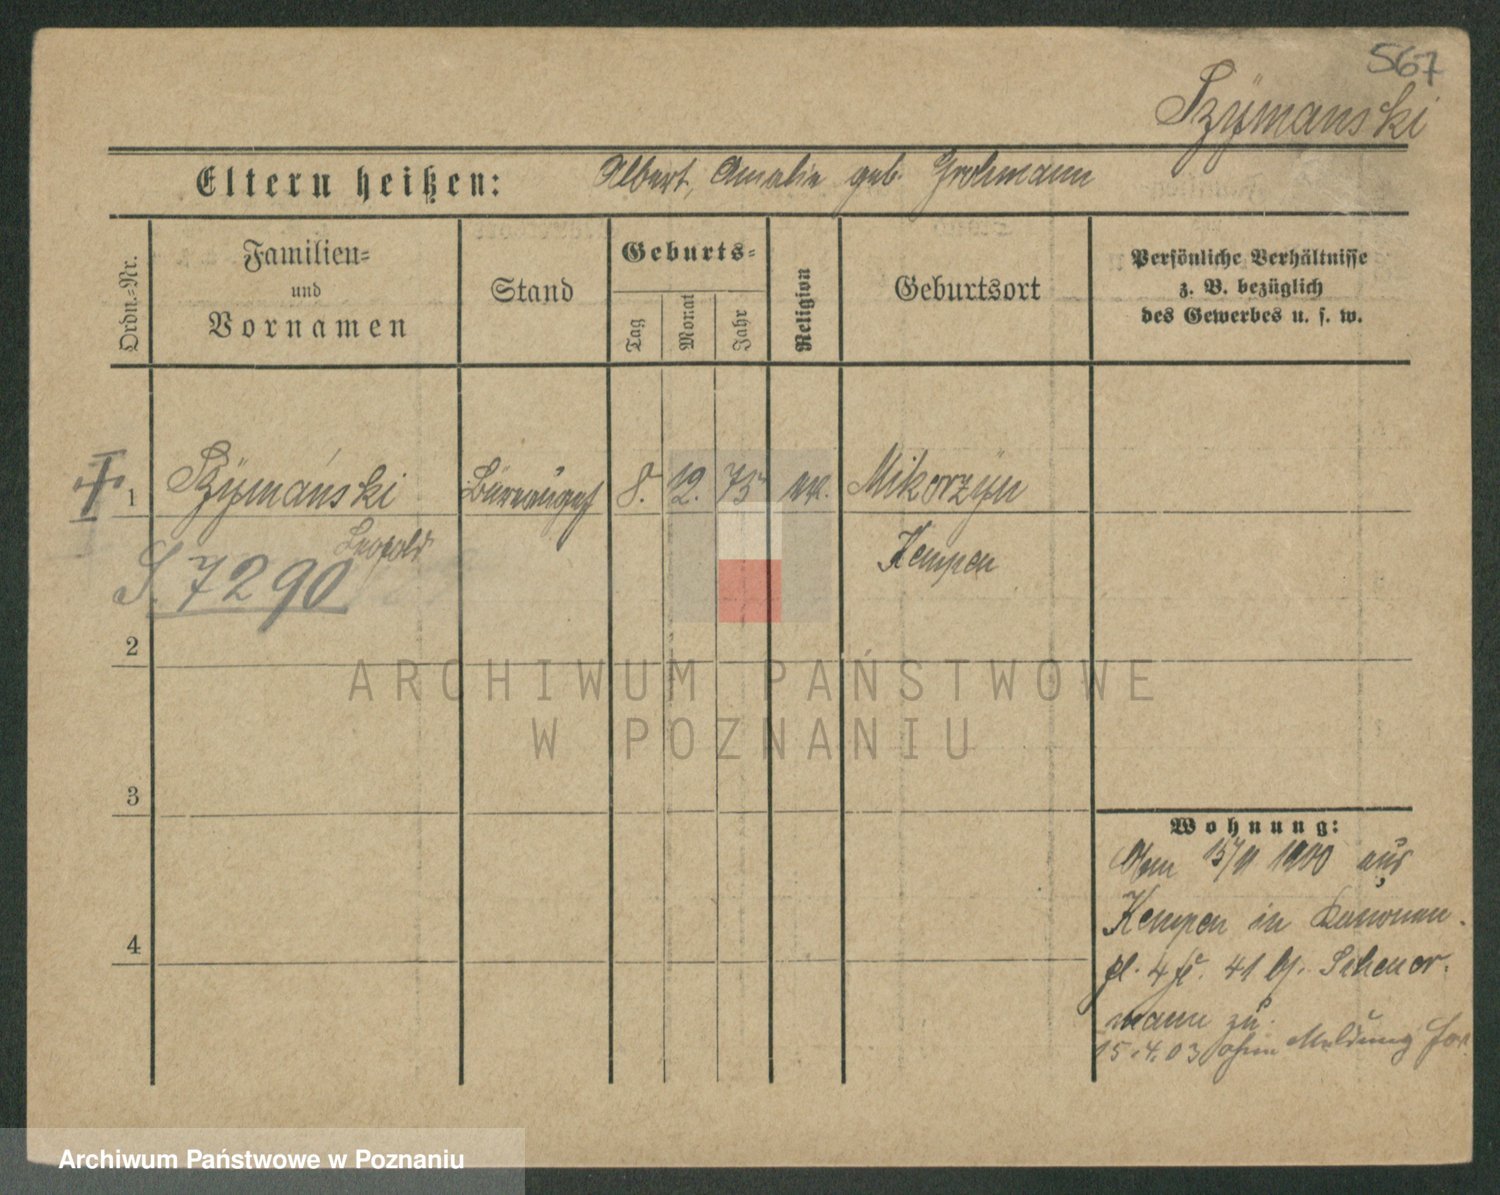 567
Szymanski
Eltern heißen: Albert, Amalie geb. Grohmann
Ordn.-Nr.
Familien-
und
Vornamen
Stand
Geburts-
Tag
Monat
Jahr
Religion
Geburtsort
Persönliche Verhältnisse
z. B. bezüglich
des Gewerbes u. s. w.
1 Szymański 8. 12. 75 Mikorzyn
Leopold
Kempen
S. 7290
2
ARCHIWUM PAŃSTWOWE
W POZNANIU
3
4
Wohnung:
1900 aus
Kempen in Kanonen-
pl. 4 41
mann zu.
15.4.03 ohne Meldung
Archiwum Państwowe w Poznaniu